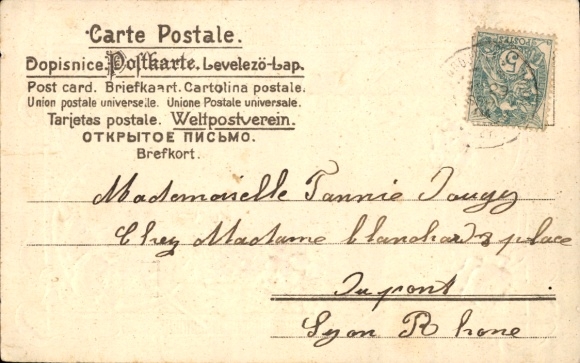 Carte Postale.
Dopisnice. Postkarte. Levelező-Lap.
Post card. Briefkaart. Cartolina postale.
Union postale universelle. Unione Postale universale.
Tarjetas postale. Weltpostverein.
ОТКРЫТОЕ ПИСЬМО.
Brefkort.
5
Mademoiselle Fannie
Chez Madame Blanchard 3 place
Dupont
Lyon Rhone